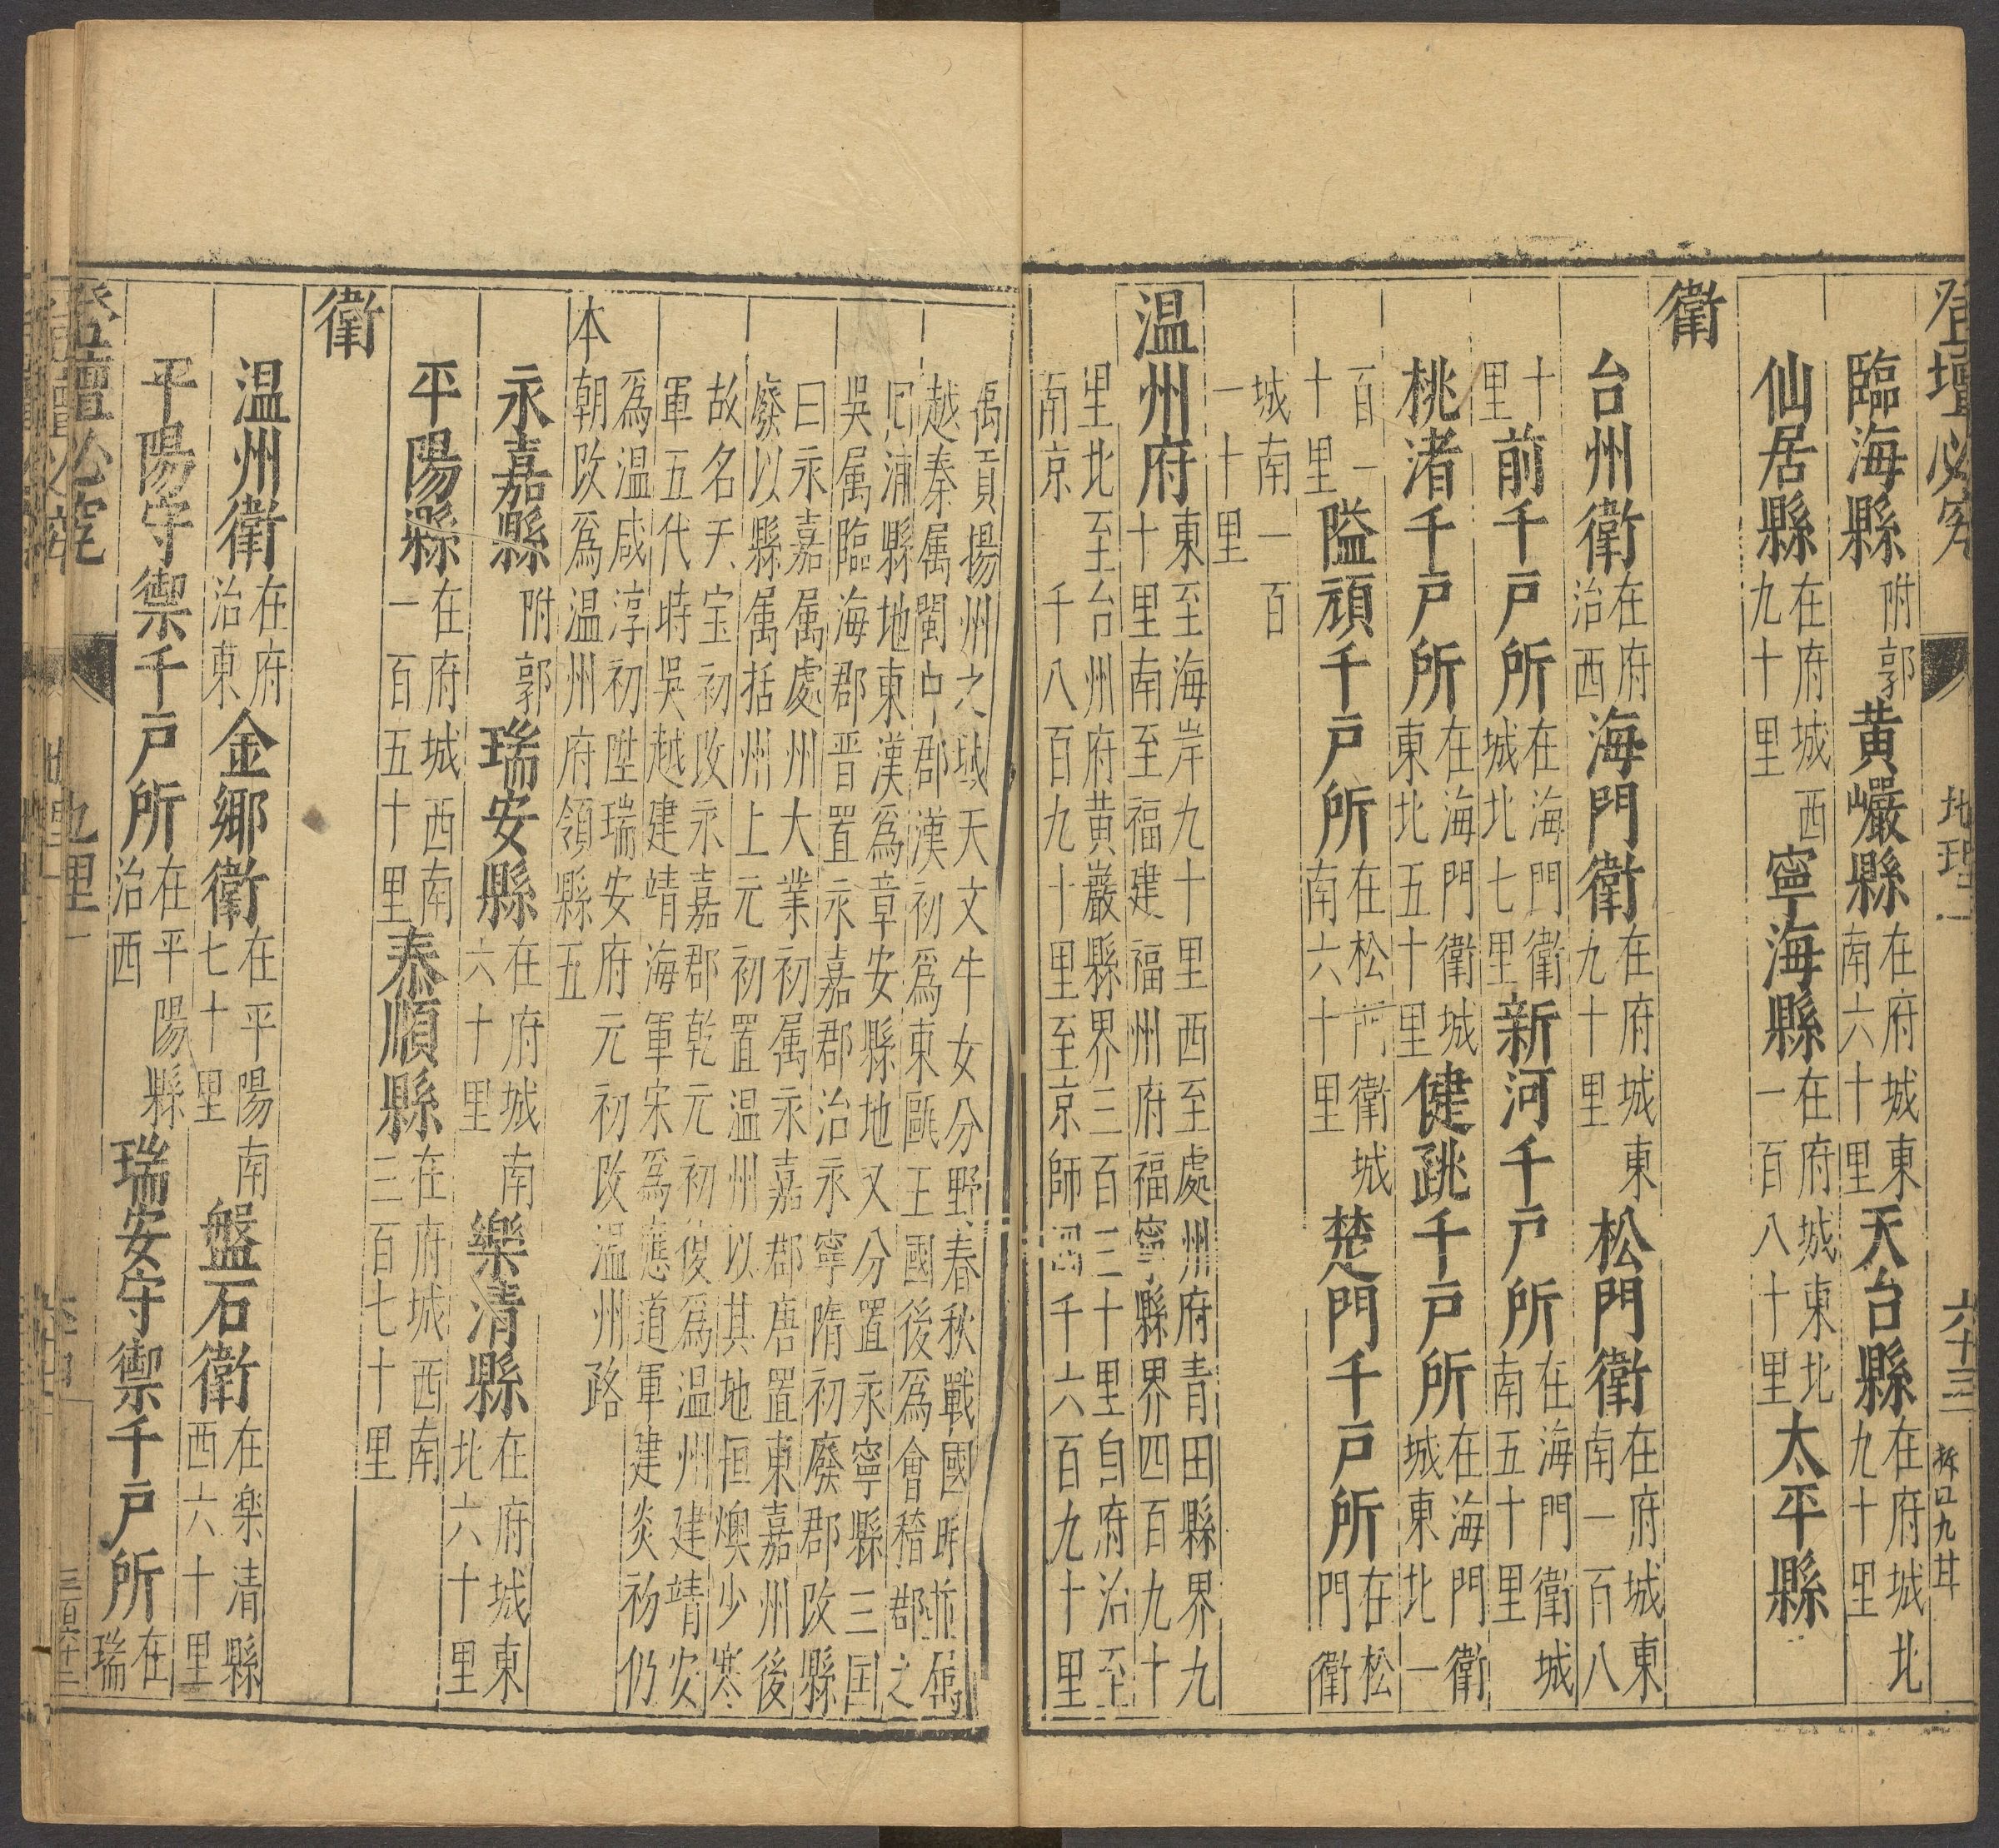 登壇必究 地理一 六十三
臨海縣附郭黃巖縣在府城東南六十里天台縣在府城北九十里
仙居縣在府城西九十里寧海縣在府城東北一百八十里太平縣
衛
台州衛在府治西海門衛在府城東九十里松門衛在府城東南一百八
十里前千戶所在海門衛城北七里新河千戶所在海門衛城南五十里
桃渚千戶所在海門衛城東北五十里健跳千戶所在海門衛城東北一
百一十里隘頑千戶所在松門衛城南六十里楚門千戶所在松門衛
城南一百一十里
温州府東至海岸九十里西至處州府青田縣界九十里南至福建福州府福寧縣界四百九十
里北至台州府黃巖縣界三百三十里自府治至南京千八百九十里至京師四千六百九十里
禹貢揚州之域天文牛女分野春秋戰國時並屬
越秦属閩中郡漢初爲東甌王國後爲會稽郡之
囘浦縣地東漢爲章安縣地又分置永寧縣三国
吳属臨海郡晋置永嘉郡治永寧隋初廢郡改縣
曰永嘉属處州大業初属永嘉郡唐置東嘉州後
廢以縣属括州上元初置温州以其地恒燠少寒
故名天宝初改永嘉郡乾元初復爲温州建靖安
軍五代時吳越建靖海軍宋爲應道軍建炎初仍
爲温咸淳初陞瑞安府元初改温州路
本朝改爲温州府領縣五
永嘉縣附郭瑞安縣在府城南六十里樂清縣在府城東北六十里
平陽縣在府城西南一百五十里泰順縣在府城西南三百七十里
衛
温州衛在府治東金鄉衛在平陽南七十里盤石衛在楽清縣西六十里
平陽守禦千戶所在平陽縣治西瑞安守禦千戶所在瑞
登壇必究 地理一